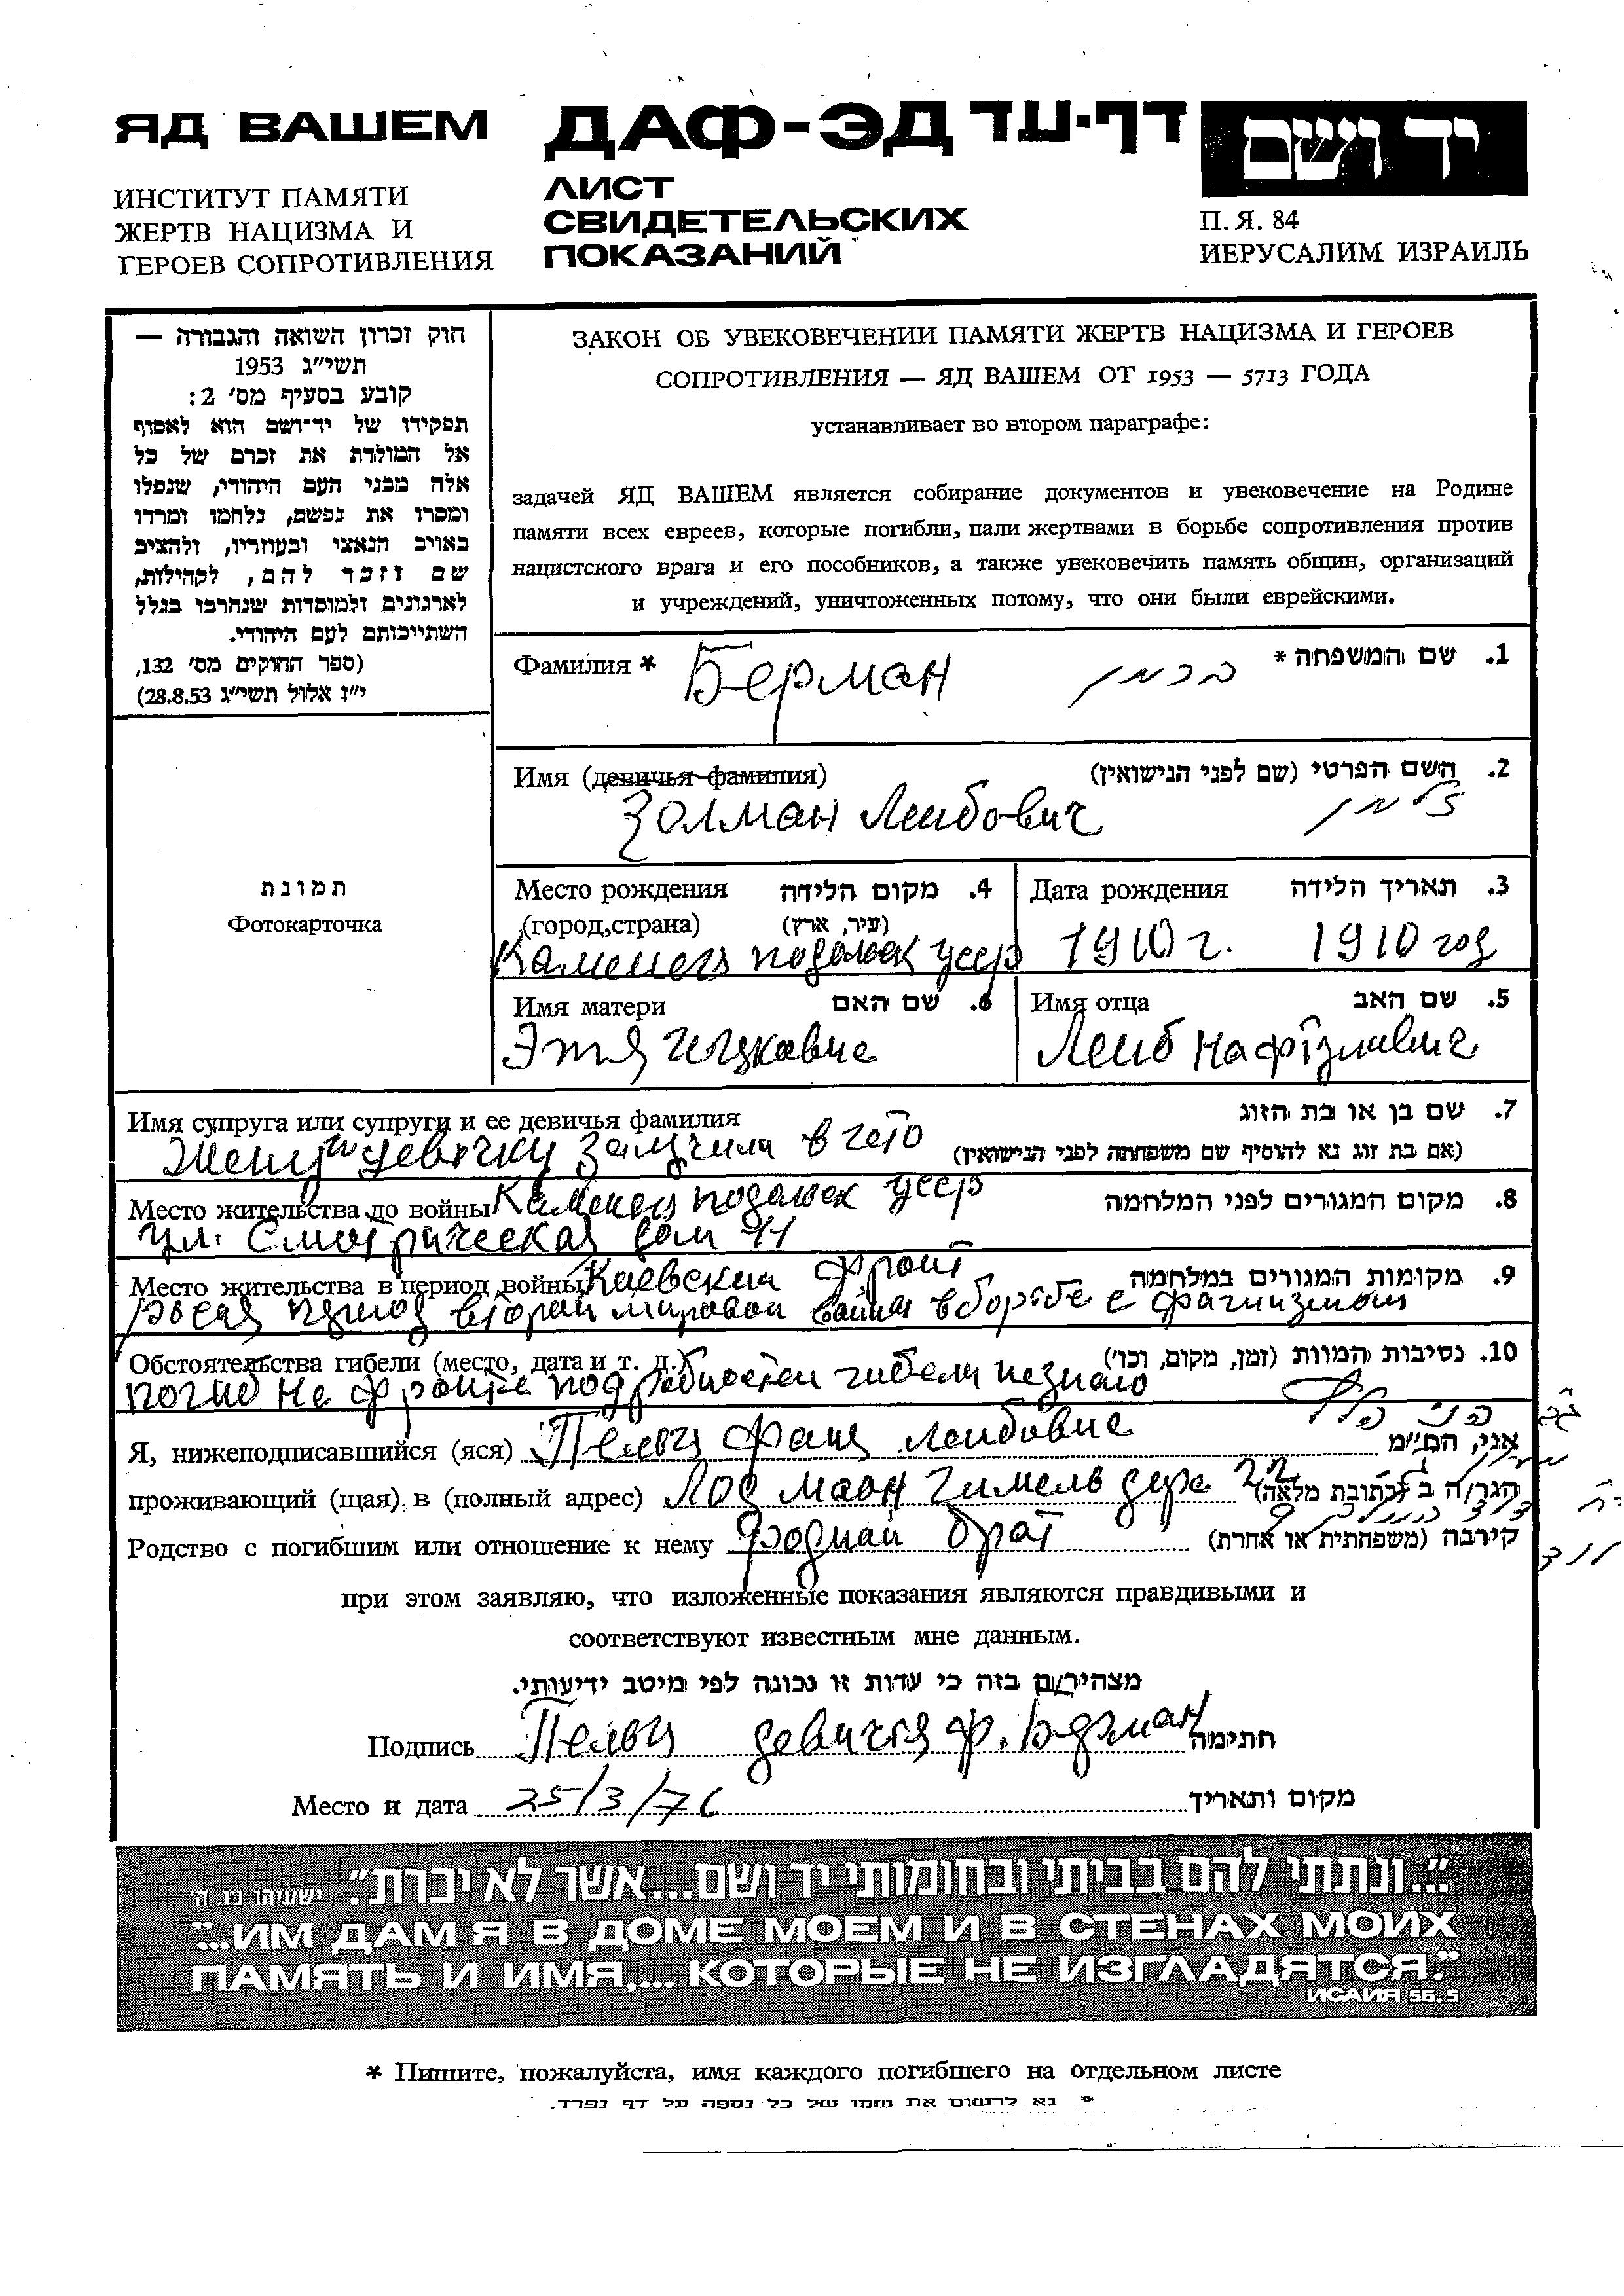 ЯД ВАШЕМ
ИНСТИТУТ ПАМЯТИ
ЖЕРТВ НАЦИЗМА И
ГЕРОЕВ СОПРОТИВЛЕНИЯ
ДАФ-ЭД דף-עד
ЛИСТ
СВИДЕТЕЛЬСКИХ
ПОКАЗАНИЙ
יד ושם
П. Я. 84
ИЕРУСАЛИМ ИЗРАИЛЬ
חוק זכרון השואה והגבורה —
תשי״ג 1953
קובע בסעיף מס׳ 2:
תפקידו של יד־ושם הוא לאסוף
אל המולדת את זכרם של כל
אלה מבני העם היהודי, שנפלו
ומסרו את נפשם, נלחמו ומרדו
באויב הנאצי ובעוזריו, ולהציב
שם וזכר להם, לקהילות,
לארגונים ולמוסדות שנחרבו בגלל
השתייכותם לעם היהודי.
(ספר החוקים מס׳ 132,
י״ז אלול תשי״ג 28.8.53)
תמונת
Фотокарточка
ЗАКОН ОБ УВЕКОВЕЧЕНИИ ПАМЯТИ ЖЕРТВ НАЦИЗМА И ГЕРОЕВ
СОПРОТИВЛЕНИЯ — ЯД ВАШЕМ ОТ 1953 — 5713 ГОДА
устанавливает во втором параграфе:
задачей ЯД ВАШЕМ является собирание документов и увековечение на Родине
памяти всех евреев, которые погибли, пали жертвами в борьбе сопротивления против
нацистского врага и его пособников, а также увековечить память общин, организаций
и учреждений, уничтоженных потому, что они были еврейскими.
Фамилия * Берман ברמן 1. שם המשפחה *
Имя (девичья фамилия) 2. השם הפרטי (שם לפני הנישואין)
Золман Леибович זלמן
Место рождения 4. מקום הלידה
(город,страна) (עיר, ארץ)
Каменец подольск усср
Дата рождения 3. תאריך הלידה
1910 г. 1910 год
Имя матери 6. שם האם
Этя
Имя отца 5. שם האב
Леиб
Имя супруга или супруги и ее девичья фамилия 7. שם בן או בת הזוג
(אם בת זוג נא להוסיף שם משפחתה לפני הנישואין)
Жену и девочку замучили в гето
Место жительства до войны Каменец подольск усср 8. מקום המגורים לפני המלחמה
ул. Смотрическая дом 41
Место жительства в период войны Киевский фронт 9. מקומות המגורים במלחמה
период второй мировой войны в борьбе с фашизмом
Обстоятельства гибели (место, дата и т. д.) 10. נסיבות המוות (זמן, מקום, וכו׳)
погиб не фронте подробностей гибели незнаю
Я, нижеподписавшийся (яся) Пельц Фаня Леибовна אני, הח״מ
проживающий (щая) в (полный адрес) Лод маон гимель дера 22 הגר/ה ב (כתובת מלאה)
Родство с погибшим или отношение к нему родной брат קירבה (משפחתית או אחרת)
при этом заявляю, что изложенные показания являются правдивыми и
соответствуют известным мне данным.
מצהיר/ה בזה כי עדות זו נכונה לפי מיטב ידיעותי.
Подпись Пельц девичья ф. Берман חתימה
Место и дата 25/3/76 מקום ותאריך
״...ונתתי להם בביתי ובחומותי יד ושם...אשר לא יכרת״. ישעיהו נ״ו, ה׳
"...ИМ ДАМ Я В ДОМЕ МОЕМ И В СТЕНАХ МОИХ
ПАМЯТЬ И ИМЯ,... КОТОРЫЕ НЕ ИЗГЛАДЯТСЯ."
ИСАИЯ 56. 5
* Пишите, пожалуйста, имя каждого погибшего на отдельном листе
* נא לרשום את שמו של כל נספה על דף נפרד.